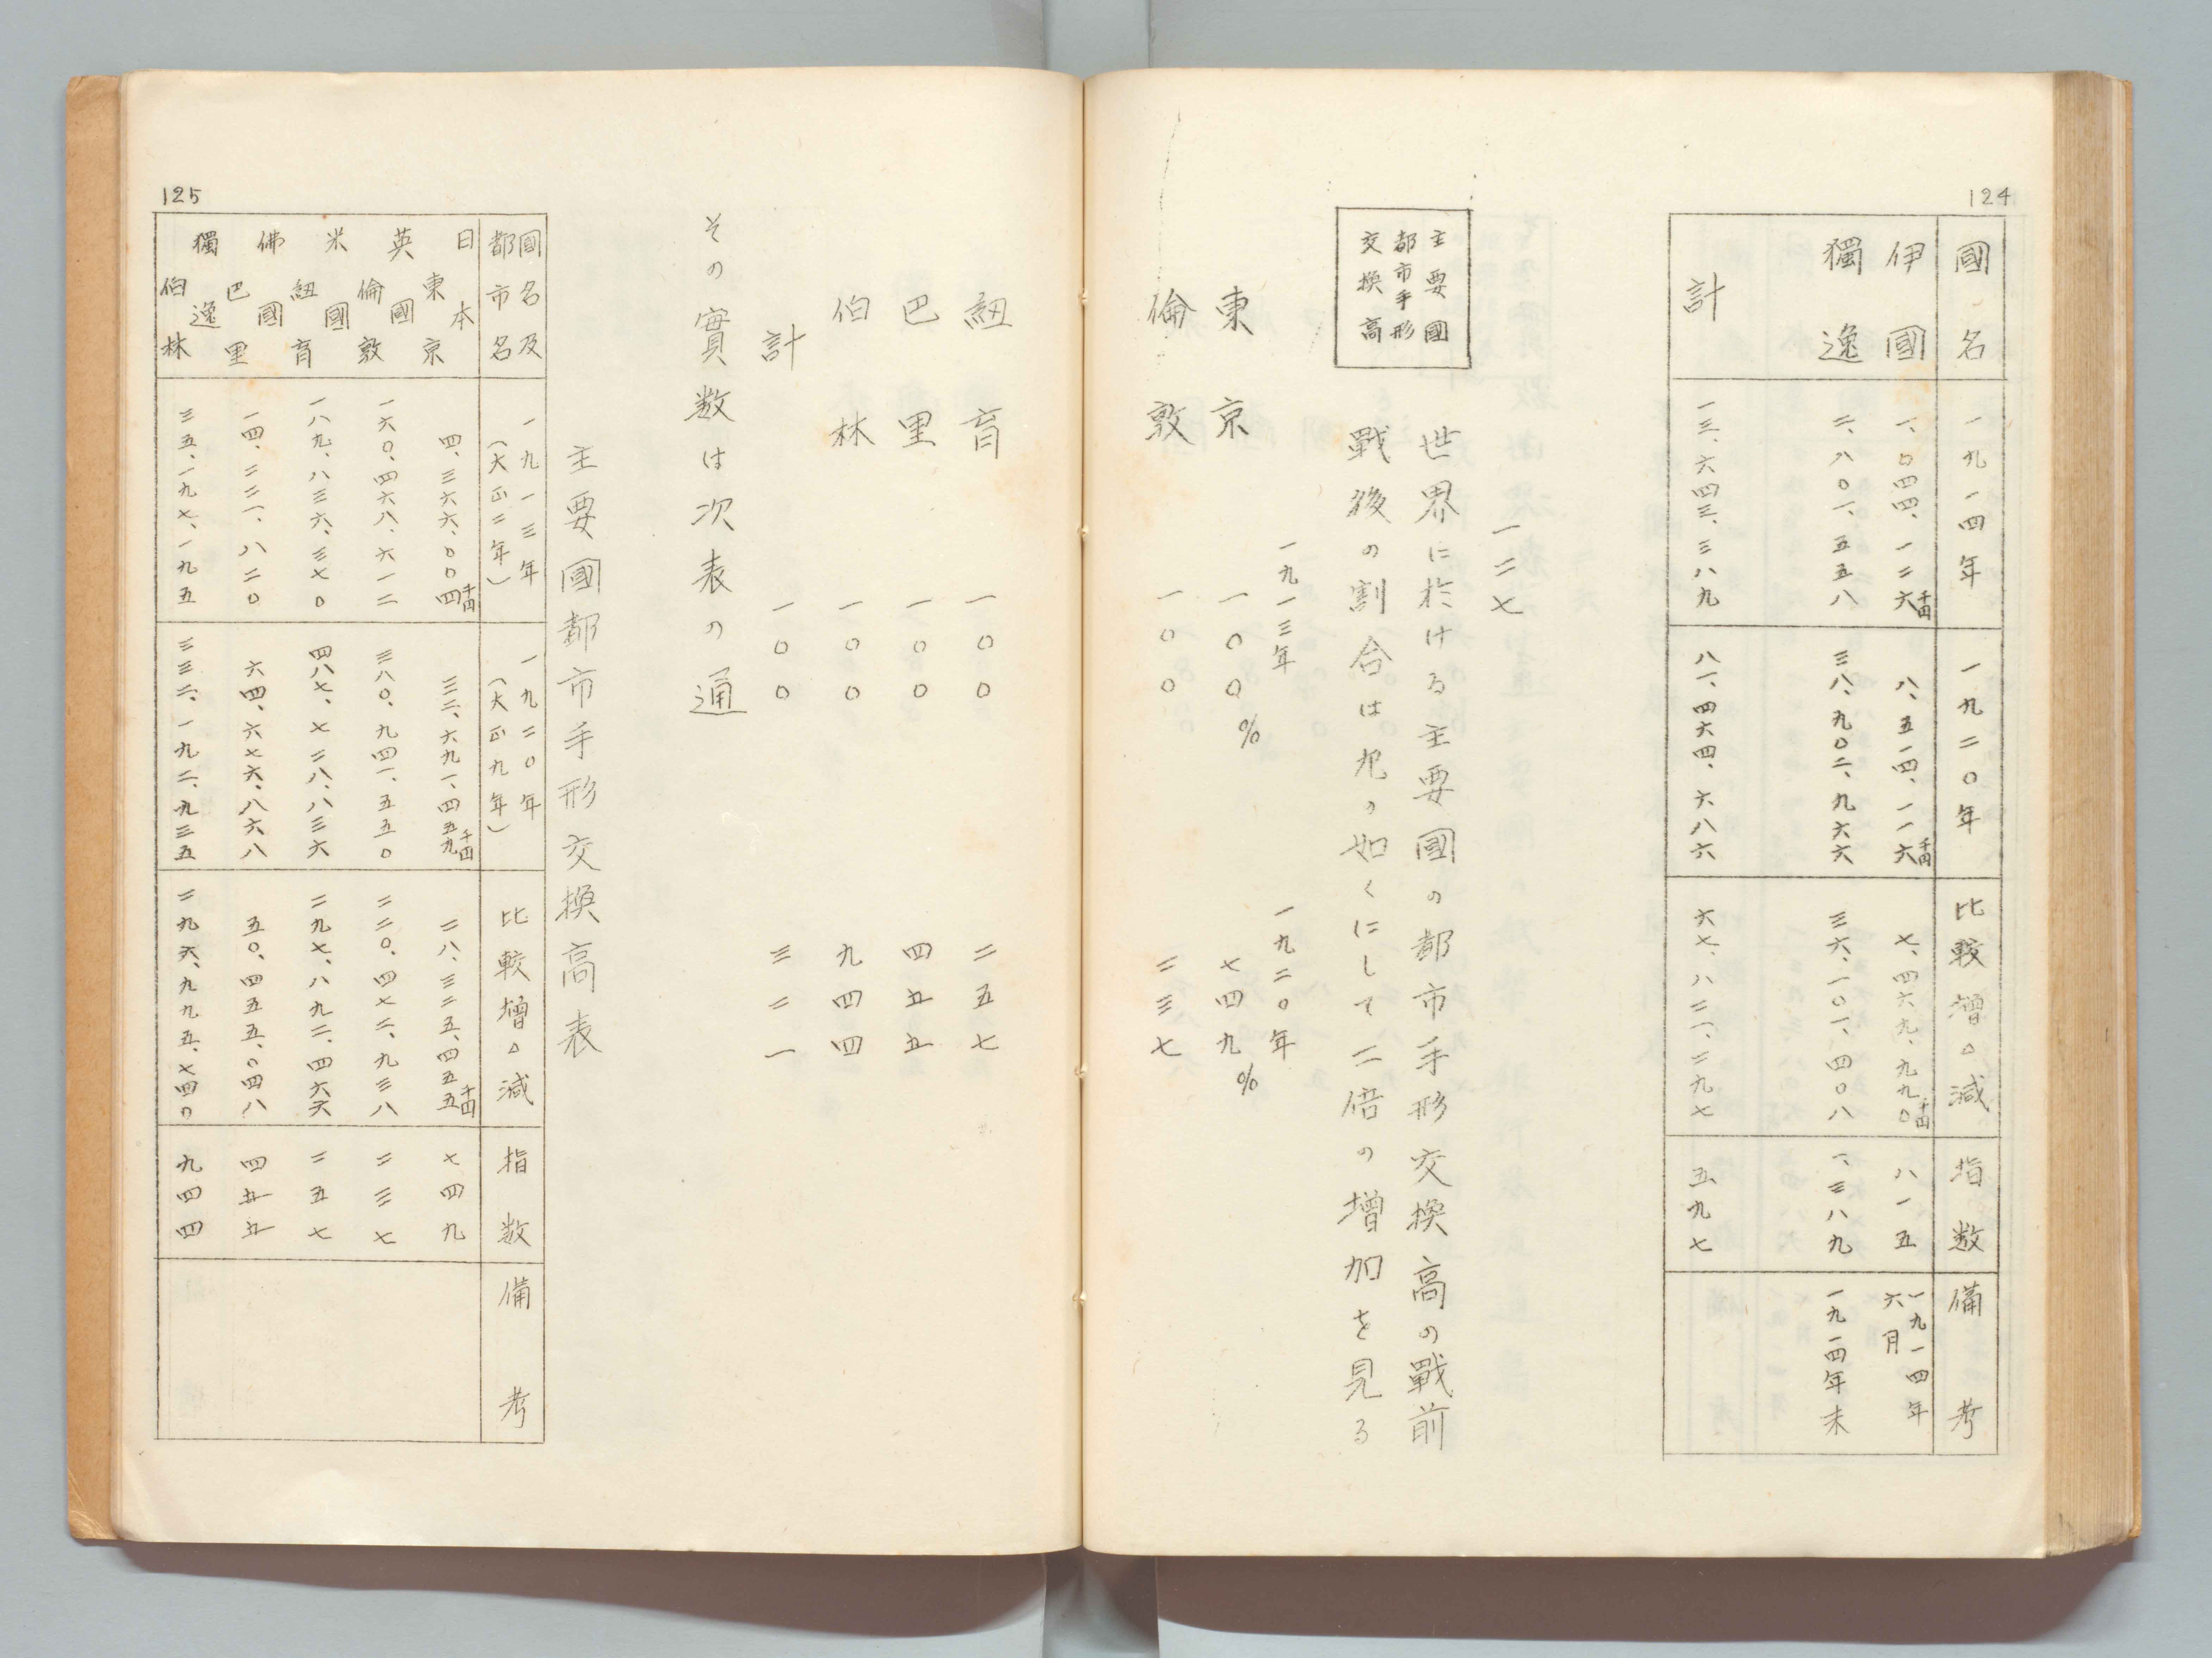 124
國名 一九一四年 一九二〇年 比較增△減 指数 備考
伊國 一、〇四四、一二六千円 八、五一四、一一六千円 七、四六九、九九〇千円 八一五 一九一四年六月
獨逸 二、八〇一、五五八 三八、九〇二、九六六 三六、一〇一、四〇八 一、三八九 一九一四年末
計 一三、六四三、三八九 八一、四六四、六八六 六七、八二一、二九七 五九七
一二七
主要國
都市手形
交換高
世界に於ける主要國の都市手形交換高の戰前
戰後の割合は凡の如くにして二倍の増加を見る
一九一三年 一九二〇年
東京 一〇〇% 七四九%
倫敦 一〇〇 二三七
紐育 一〇〇 二五七
巴里 一〇〇 四五五
伯林 一〇〇 九四四
計 一〇〇 三二一
その實数は次表の通
主要國都市手形交換高表
125
國名及都市名 一九一三年(大正二年) 一九二〇年(大正九年) 比較增△減 指数 備考
日本東京 四、三六六、〇〇四千円 三二、六九一、四五九千円 二八、三二五、四五五千円 七四九
英國倫敦 一六〇、四六八、六一二 三八〇、九四一、五五〇 二二〇、四七二、九三八 二三七
米國紐育 一八九、八三六、三七〇 四八七、七二八、八三六 二九七、八九二、四六六 二五七
佛國巴里 一四、二二一、八二〇 六四、六七六、八六八 五〇、四五五、〇四八 四五五
獨逸伯林 三五、一九七、一九五 三三二、一九二、九三五 二九六、九九五、七四〇 九四四